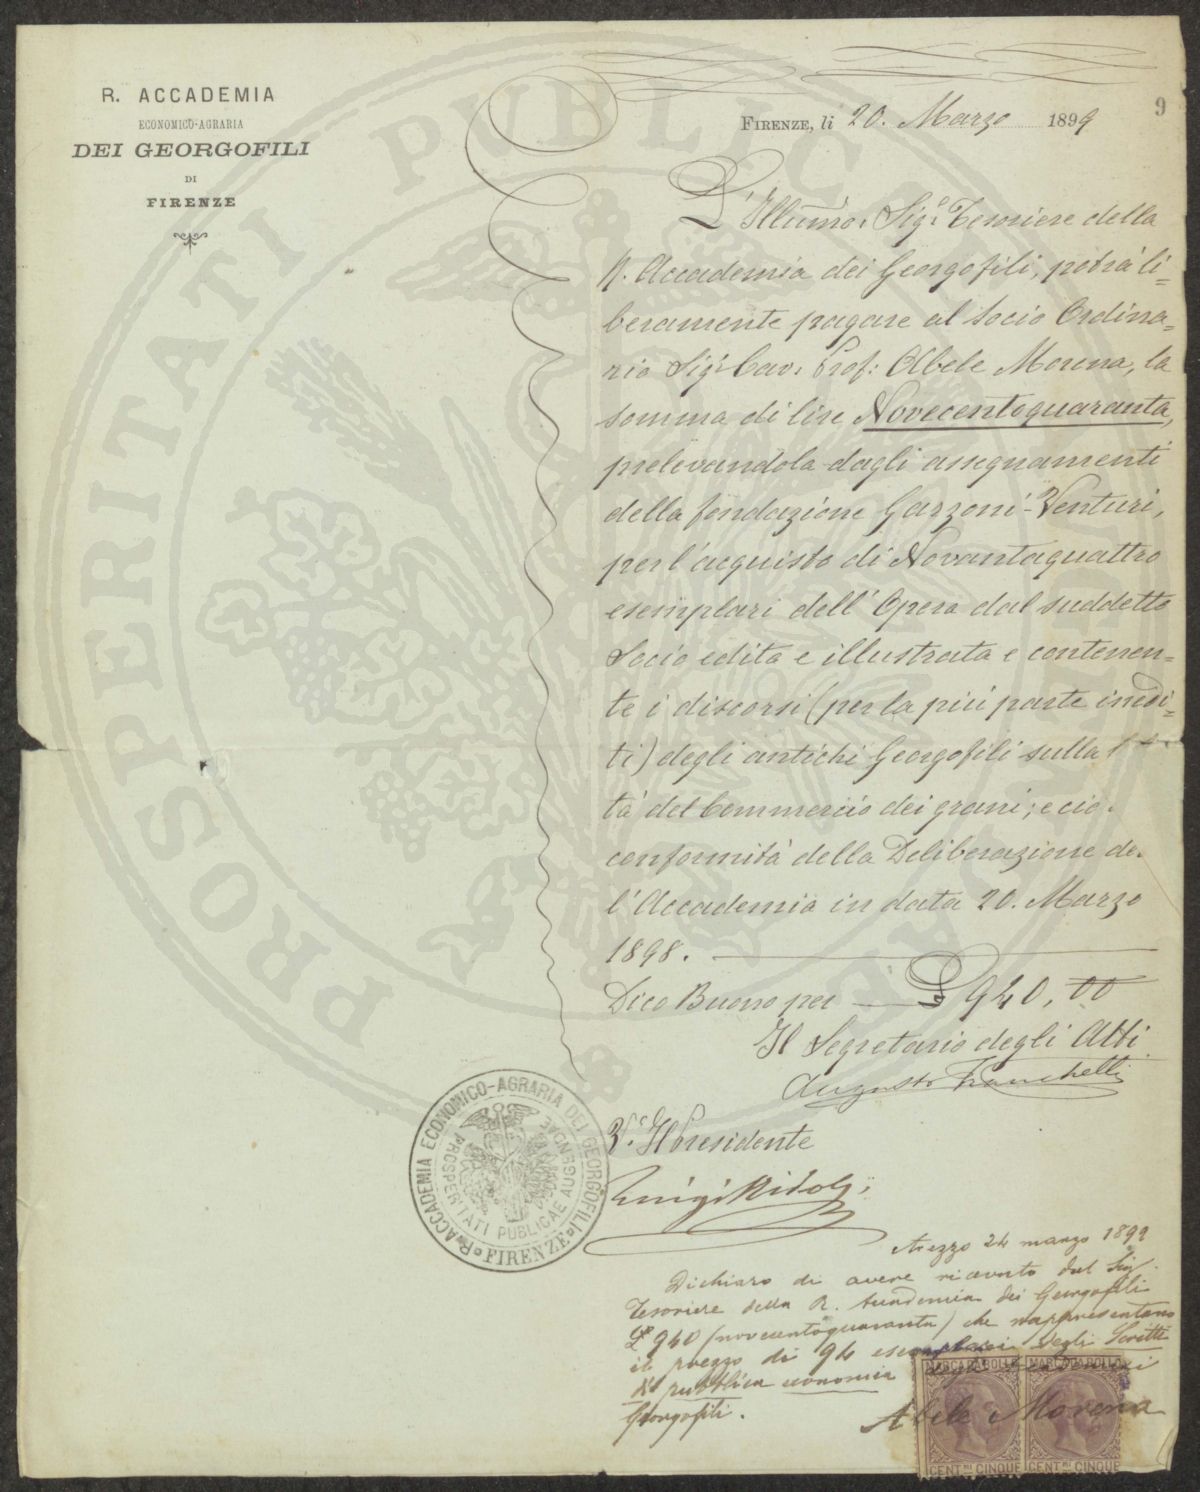 R. ACCADEMIA
ECONOMICO-AGRARIA
DEI GEORGOFILI
DI
FIRENZE
9
FIRENZE, li 20. Marzo 1899
L'Illumo. Sigr. Tesoriere della
R. Accademia dei Georgofili, potrà li=
beramente pagare al Socio Ordina=
rio Sigr. Cav. Prof: Abele Morena, la
somma di lire Novecentoquaranta,
prelevandola dagli assegnamenti
della fondazione Garzoni-Venturi,
per l'acquisto di Novantaquattro
esemplari dell'Opera dal suddetto
Socio edita e illustrata e contenen-
te i discorsi (per la più parte inedi-
ti) degli antichi Georgofili sulla
tà del Commercio dei grani; e ciò
conformità della Deliberazione de
l'Accademia in data 20. Marzo
1898.
Dico Buono per £ 940,00
Il Segretario degli Atti
Augusto Franchetti
V.° Il Presidente
Luigi Ridolfi
R. ACCADEMIA ECONOMICO-AGRARIA DEI GEORGOFILI
FIRENZE
PROSPERITATI PUBLICAE AUGENDAE
Arezzo 24 marzo 1899
Dichiaro di avere ricevuto dal Sig.
Tesoriere della R. Accademia dei Georgofili
L.e 940 (novecentoquaranta) che rappresentano
il prezzo di 94 esemplari degli Scritti
di pubblica economia degli Accademici
Georgofili.
Abele Morena
MARCA DA BOLLO MARCA DA BOLLO
CENT.MI CINQUE CENT.MI CINQUE
PROSPERITATI PUBLICAE AUGENDAE